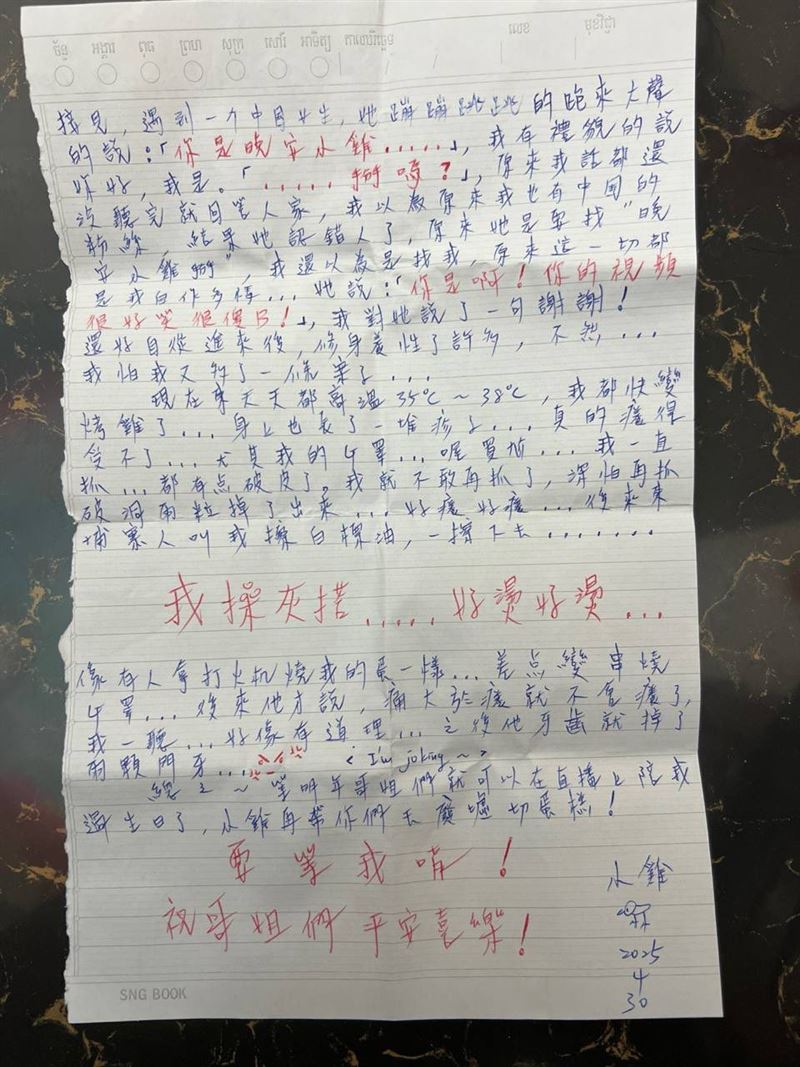 ច័ន្ទ អង្គារ ពុធ ព្រហ សុក្រ សៅរ៍ អាទិត្យ កាលបរិច្ឆេទ លេខ មុខវិជ្ជា
接見，遇到一个中国女生，她蹦蹦跳跳的跑來大聲
的說：「你是晚安小雞.....」，我有禮貌的說
你好，我是。「.....掰嗎？」，原來我話都還
沒聽完就回答人家，我以為原來我也有中国的
粉絲，結果她認錯人了，原來她是要找"晚
安小雞掰"，我還以為是找我，原來這一切都
是我自作多情... 她說：「你是啊！你的視頻
很好笑很傻B！」，我對她說了一句謝謝！
還好自從進來後，修身養性了許多，不然...
我怕我又夠了一條案了...
現在柬天天都高溫35℃～38℃，我都快變
烤雞了...身上也長了一堆疹子...真的癢得
受不了...尤其我的GG...喔買尬...我一直
抓...都有点破皮了。我就不敢再抓了，深怕再抓
破洞兩粒掉了出來...好癢好癢...後來柬
埔寨人叫我擦白擦油，一擦下去.......
我操灰搭.....好燙好燙...
像有人拿打火机燒我的蛋一樣...差点變串燒
後來他才說，痛大於癢就不會癢了，
我一聽...好像有道理...之後他牙齒就掉了
兩顆門牙... < I'm joking ~ >
總之～等明年哥姐們就可以在直播上陪我
過生日了，小雞再帶你們去廢墟切蛋糕！
要等我唷！
祝哥姐們平安喜樂！
小雞
2025
4
30
SNG BOOK